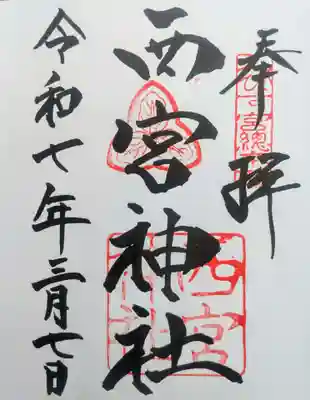 奉拝
西宮神社
令和七年三月七日